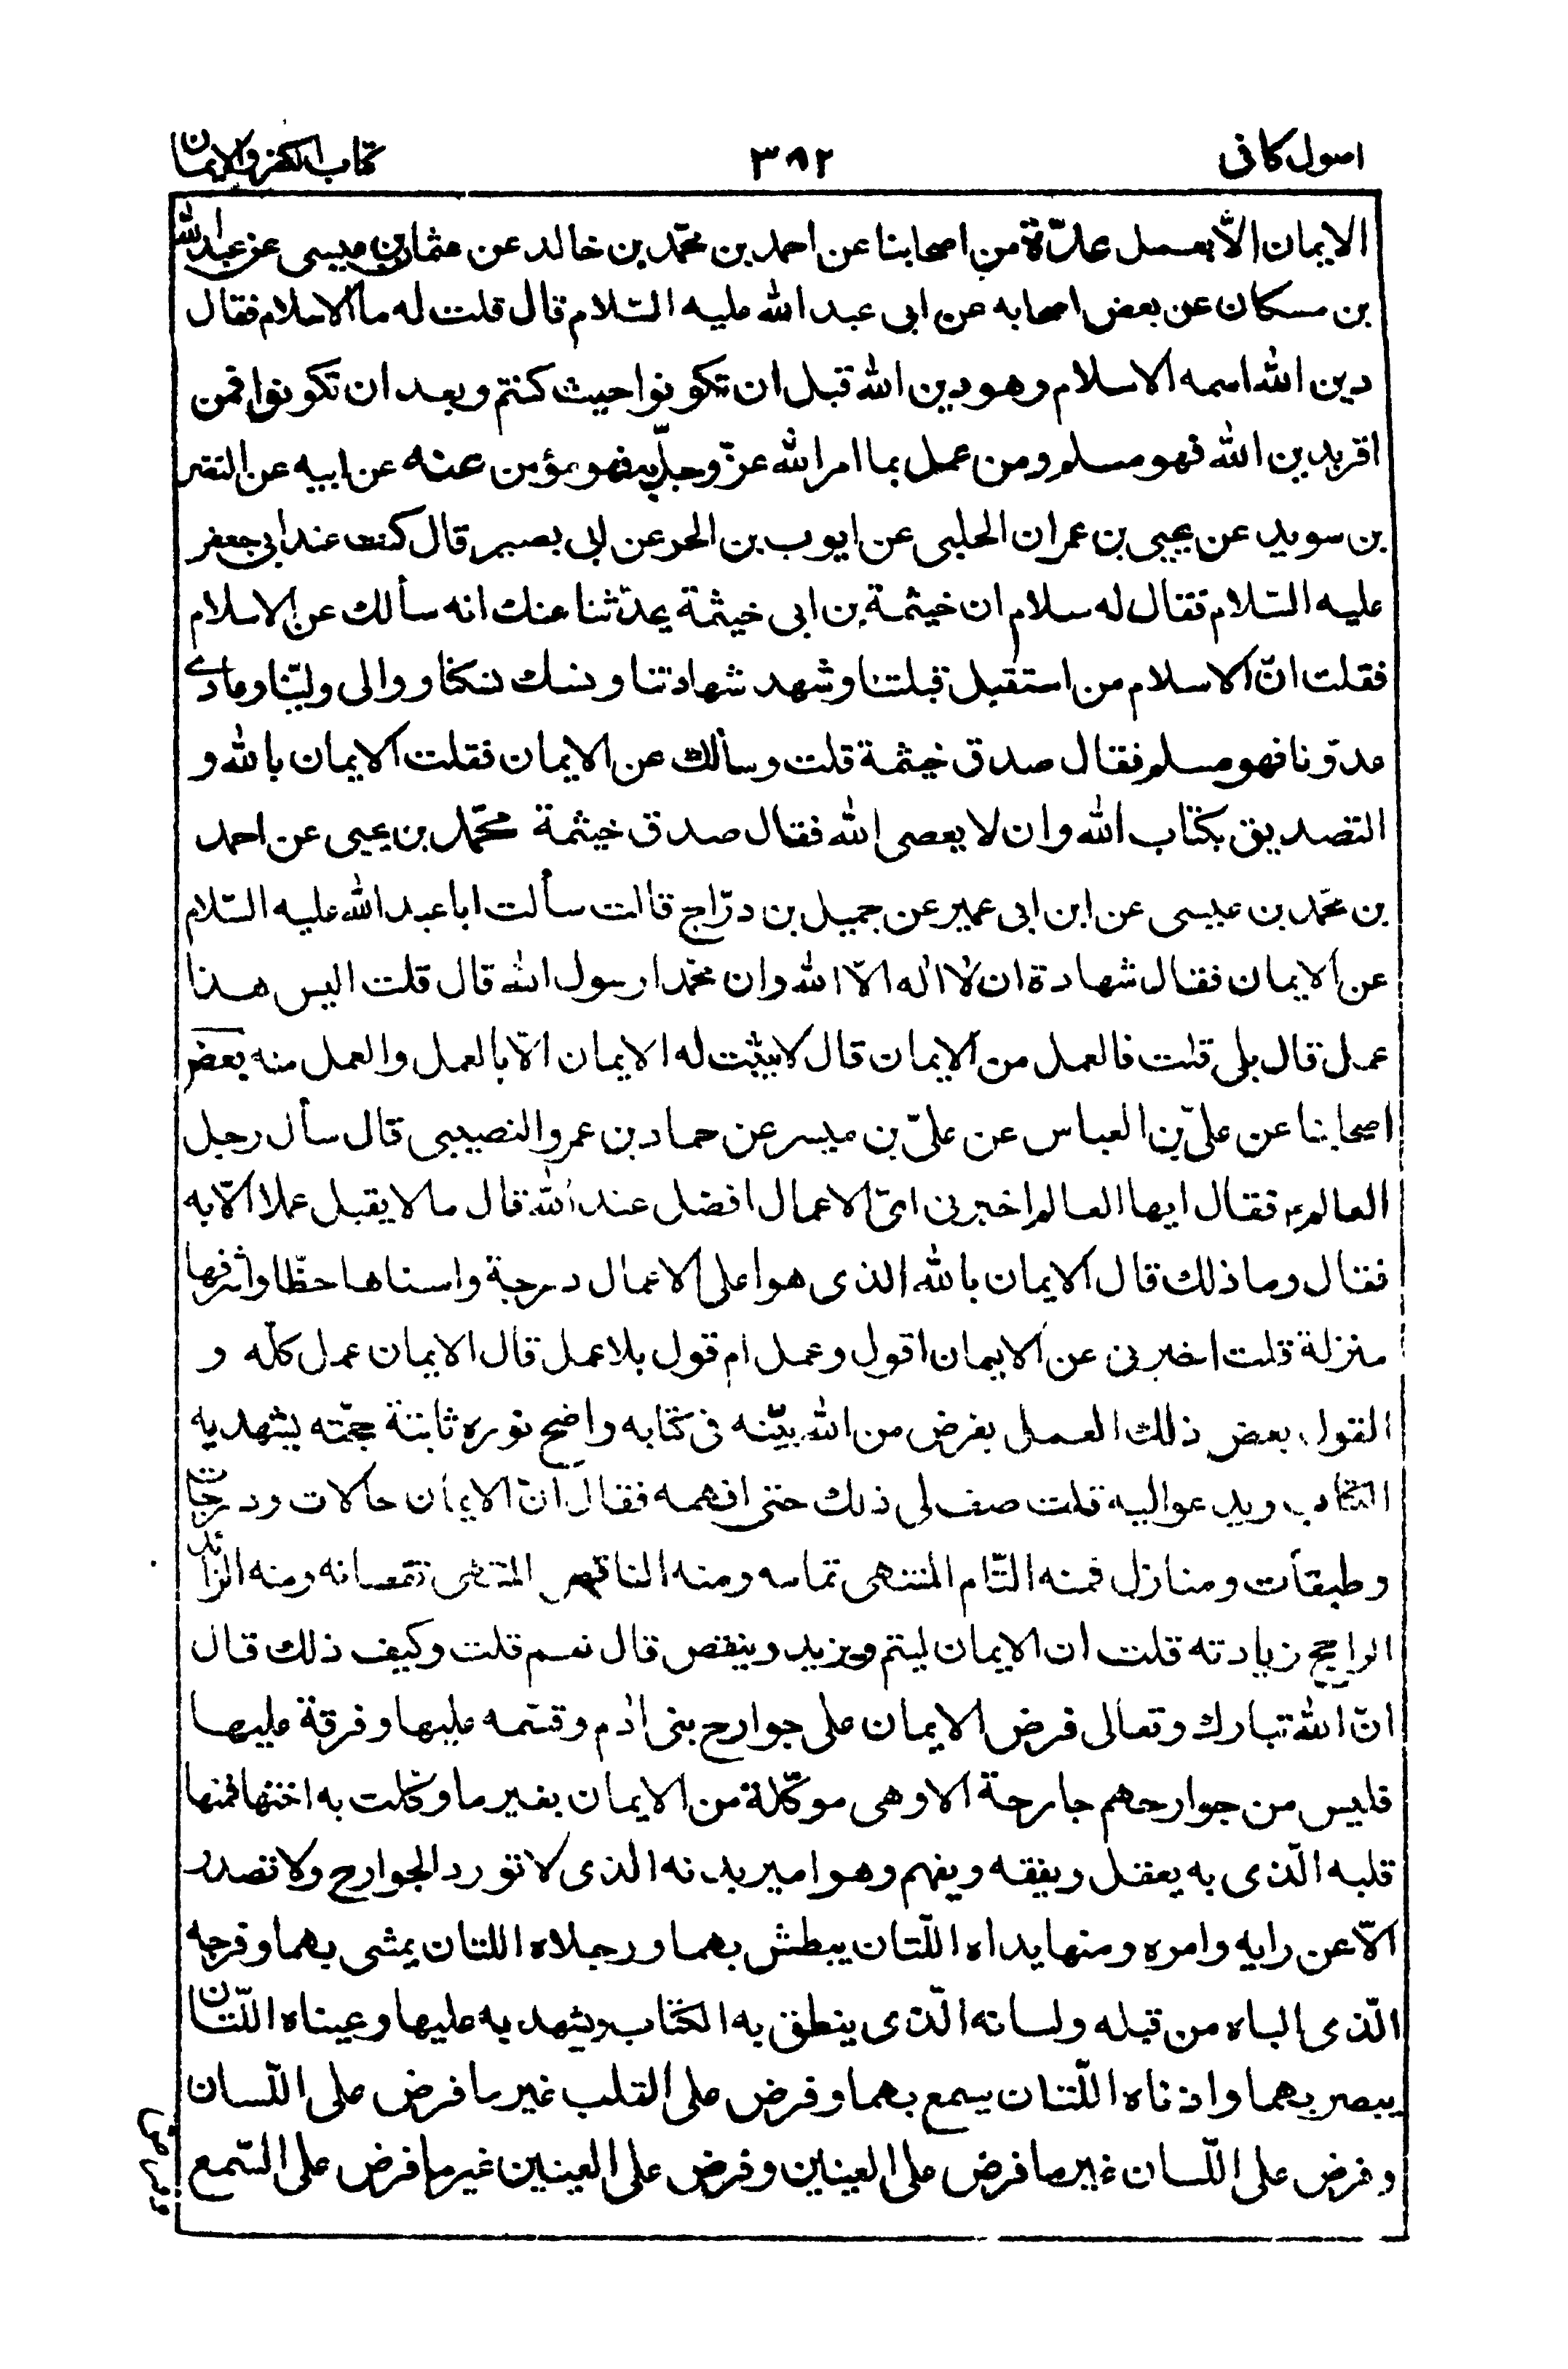 اصول کافی ۳۸۲ کتاب الکفر والایمان
الایمان الاّ بعمل عدّة من اصحابنا عن احمد بن محمّد بن خالد عن عثمان بن عیسی عن عبدالله
بن مسکان عن بعض اصحابه عن ابی عبد الله علیه السّلام قال قلت له ما الاسلام فقال
دین الله اسمه الاسلام وهو دین الله قبل ان تکونوا حیث کنتم وبعد ان تکونوا فمن
اقر بدین الله فهو مسلم ومن عمل بما امر الله عزّ وجلّ به فهو مؤمن عنه عن ابیه عن النضر
بن سوید عن یحیی بن عمران الحلبی عن ایوب بن الحر عن ابی بصیر قال کنت عند ابی جعفر
علیه السّلام فقال له سلام ان خیثمة بن ابی خیثمة یحدّثنا عنك انه سألك عن الاسلام
فقلت انّ الاسلام من استقبل قبلتنا وشهد شهادتنا ونسك نسکنا ووالی ولیّنا وعادی
عدوّنا فهو مسلم فقال صدق خیثمة قلت وسألك عن الایمان فقلت الایمان بالله و
التصدیق بکتاب الله وان لا یعصی الله فقال صدق خیثمة محمّد بن یحیی عن احمد
بن محمّد بن عیسی عن ابن ابی عمیر عن جمیل بن درّاج قال سألت ابا عبد الله علیه السّلام
عن الایمان فقال شهادة ان لا اله الاّ الله وان محمّدا رسول الله قال قلت الیس هذا
عمل قال بلی قلت فالعمل من الایمان قال لا یثبت له الایمان الاّ بالعمل والعمل منه بعض
اصحابنا عن علیّ بن العباس عن علیّ بن میسر عن حماد بن عمرو النصیبی قال سأل رجل
العالم ع فقال ایها العالم اخبرنی ایّ الاعمال افضل عند الله قال ما لا یقبل عملا الاّ به
فقال وما ذلك قال الایمان بالله الذی هو اعلی الاعمال درجة واسناها حظّا واشرفها
منزلة قلت اخبرنی عن الایمان اقول وعمل ام قول بلا عمل قال الایمان عمل کلّه و
القول بعض ذلك العمل بفرض من الله بیّنه فی کتابه واضح نوره ثابتة حجّته یشهد به
الکتاب ویدعو الیه قلت صف لی ذلك حتی افهمه فقال انّ الایمان حالات ودرجات
وطبقات ومنازل فمنه التّام المنتهی تمامه ومنه الناقص المنتهی نقصانه ومنه الزائد
الراجح زیادته قلت ان الایمان لیتم ویزید وینقص قال نعم قلت وکیف ذلك قال
انّ الله تبارك وتعالی فرض الایمان علی جوارح بنی ادم وقسّمه علیها وفرقة علیها
فلیس من جوارحهم جارحة الا وهی موکّلة من الایمان بغیر ما وکّلت به اختها فمنها
قلبه الّذی به یعقل ویفقه ویفهم وهو امیر بدنه الذی لا تورد الجوارح ولا تصدر
الاّ عن رایه وامره ومنها یداه اللّتان یبطش بهما ورجلاه اللتان یمشی بهما وفرجه
الّذی الباه من قبله ولسانه الّذی ینطق به الکتاب ویشهد به علیها وعیناه اللّتان
یبصر بهما واذناه اللّتان یسمع بهما وفرض علی القلب غیر ما فرض علی اللّسان
وفرض علی اللّسان غیر ما فرض علی العینین وفرض علی العینین غیر ما فرض علی السّمع